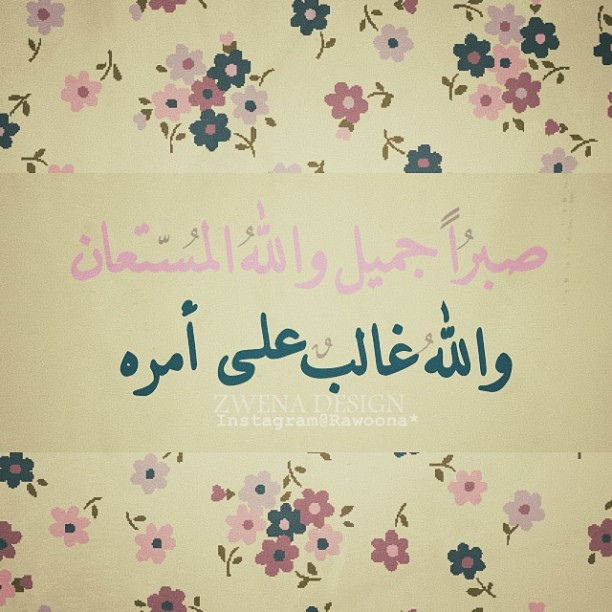 صبراً جميل واللهُ المُسّتعان
واللهُ غالبٌ على أمره
ZWENA DESIGN
Instagram@Rawoona*